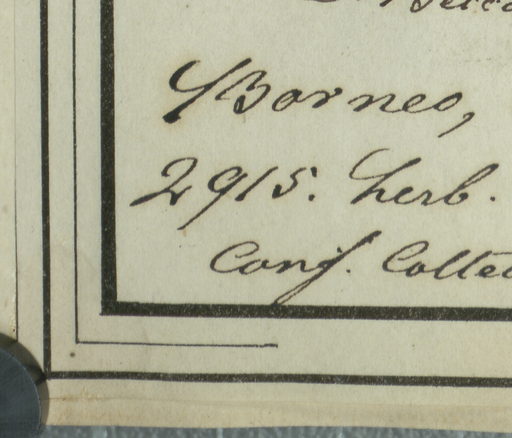 Borneo,
2915. herb.
Conf. Collec